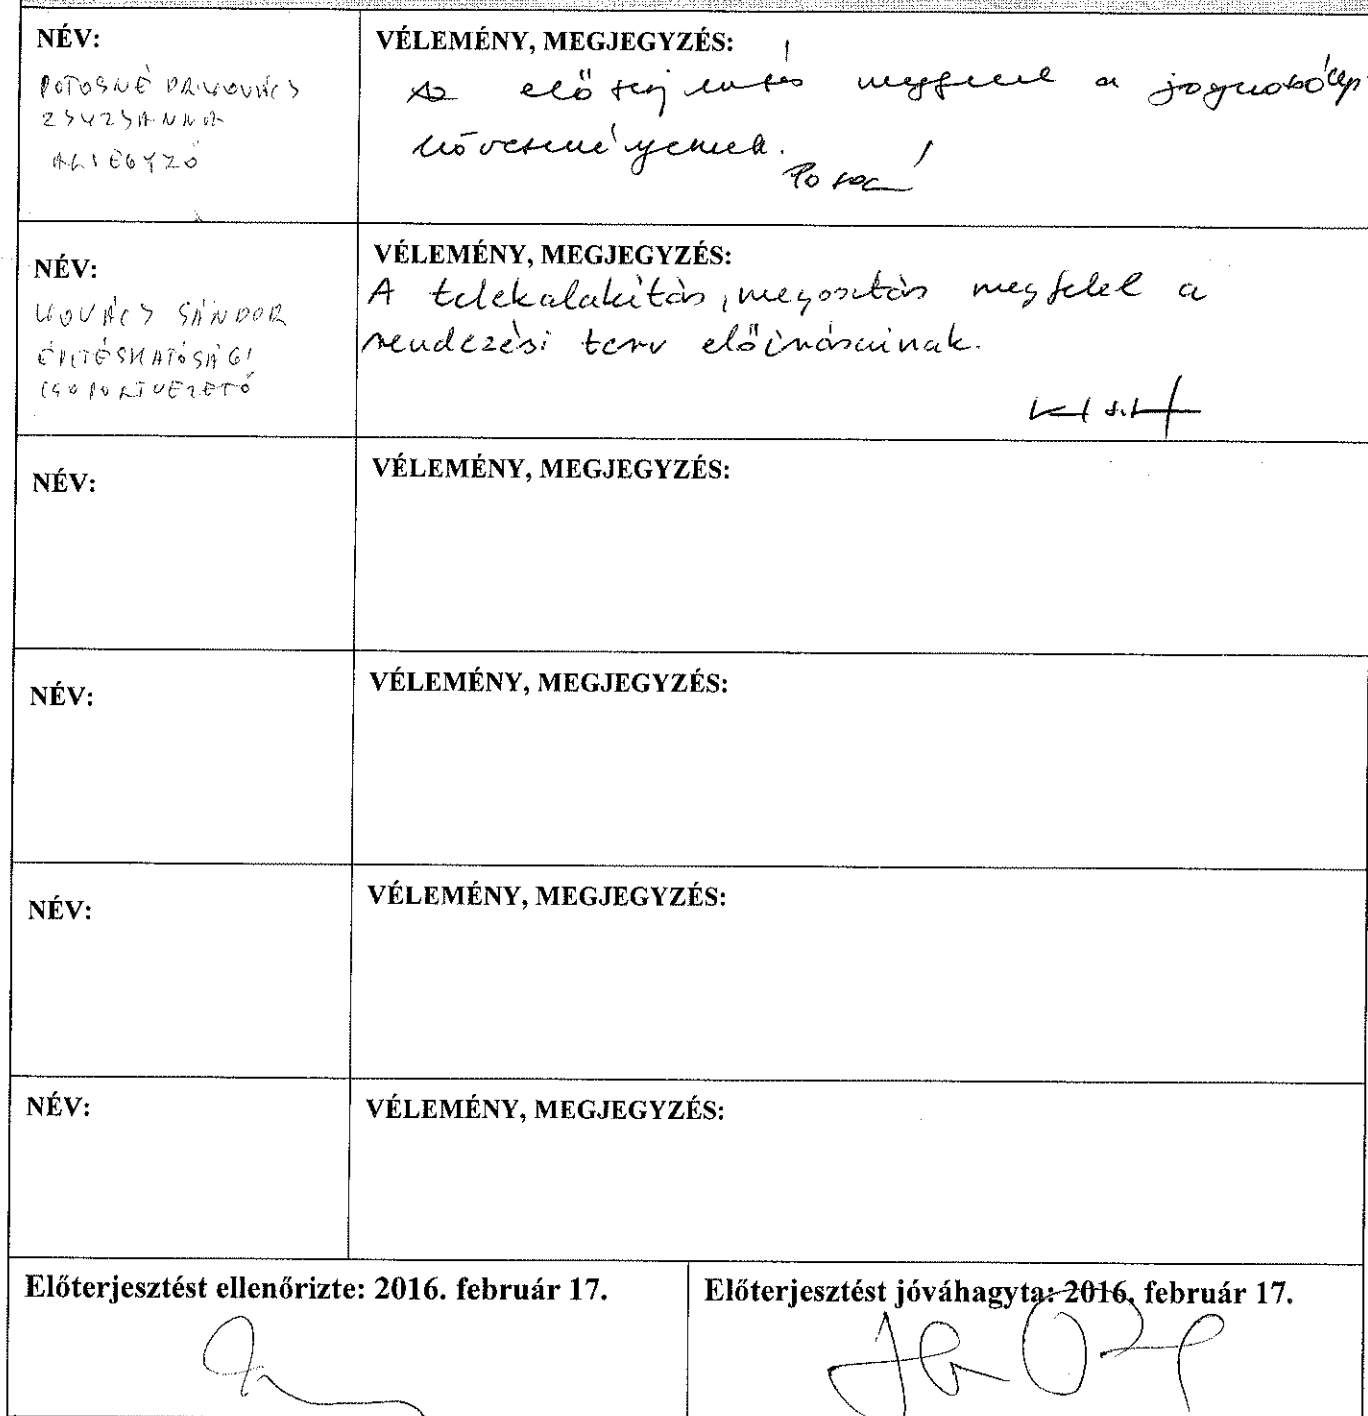 NÉV:
VÉLEMÉNY, MEGJEGYZÉS:
ZSUZSANNA
ALJEGYZŐ
Az előterjesztés megfelel a
követelményeinek.
NÉV:
KOVÁCS SÁNDOR
ÉPÍTÉSHATÓSÁGI
CSOPORTVEZETŐ
VÉLEMÉNY, MEGJEGYZÉS:
A telekalakítás, megosztás megfelel a
rendezési terv előírásainak.
NÉV:
VÉLEMÉNY, MEGJEGYZÉS:
NÉV:
VÉLEMÉNY, MEGJEGYZÉS:
NÉV:
VÉLEMÉNY, MEGJEGYZÉS:
NÉV:
VÉLEMÉNY, MEGJEGYZÉS:
Előterjesztést ellenőrizte: 2016. február 17.
Előterjesztést jóváhagyta: 2016. február 17.